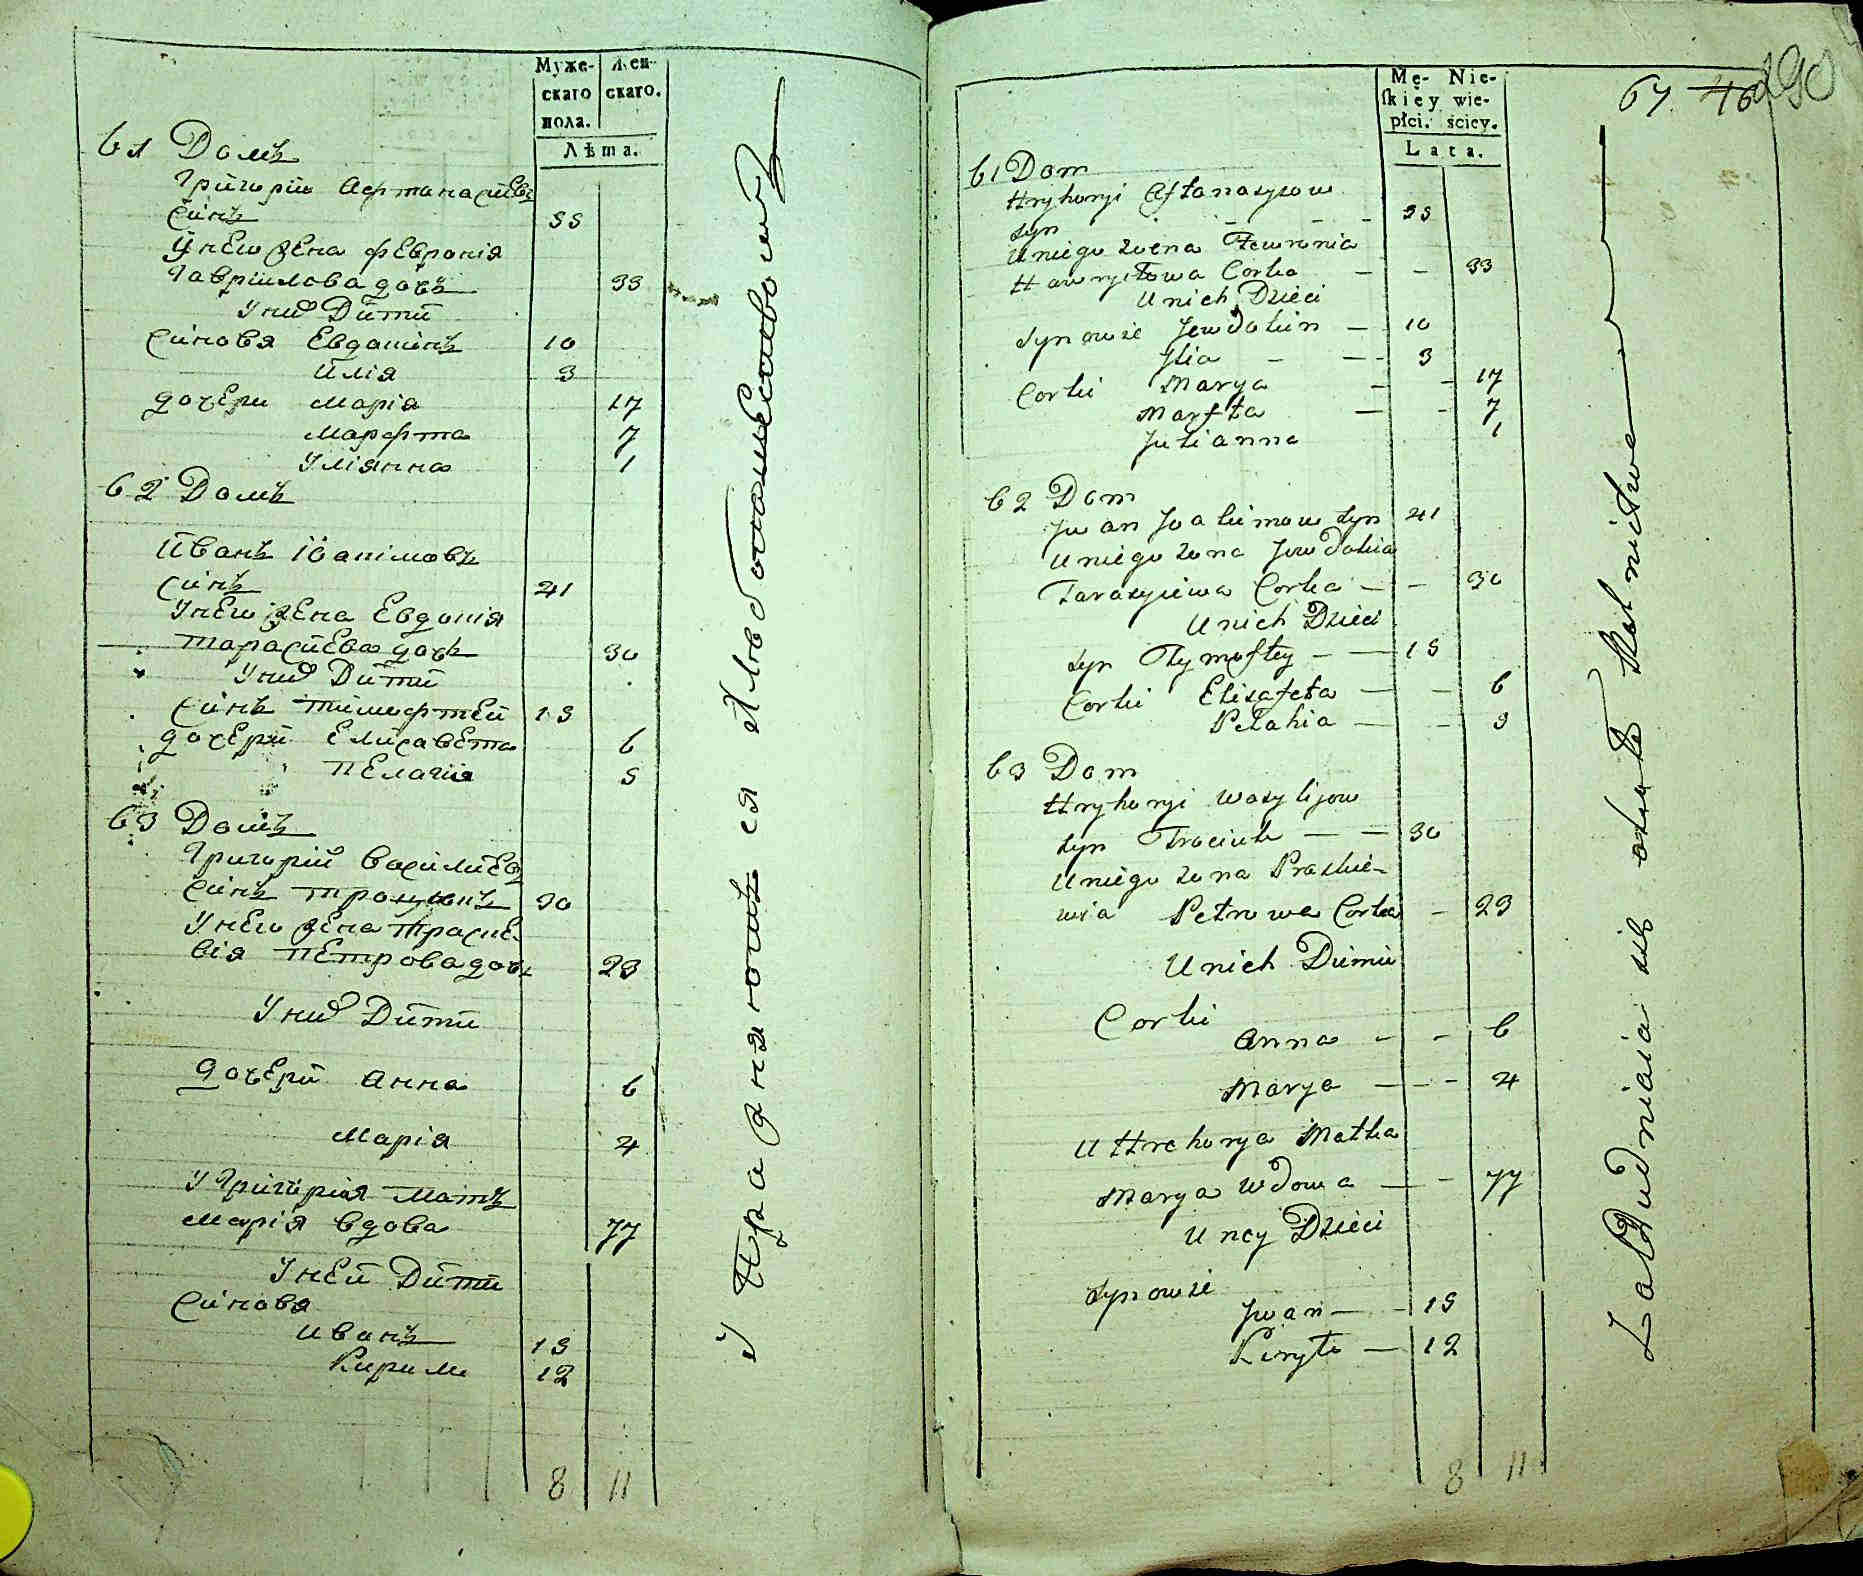 Муже- Жен-
скаго скаго.
пола.
Лѣта.
61 Домъ
Григорій Афтанасіевъ
Синъ 35
Унего жена Февронія
Гавріилова дочь 33
Уних Дѣти
Синовя Евдокимъ 10
Илія 3
дочери Марія 17
Марфта 7
Уліянна 1
62 Домъ
Иванъ Іоакімовъ
Синъ 41
Унего жена Евдокія
Тарасіева дочь 30
Уних Дѣти
Синъ Тимофтей 13
дочери Елисавета 6
Пелагія 3
63 Домъ
Григорій Василіев
Синъ Троцюкъ 30
Унего жена Праске-
вія Петрова дочь 23
Уних Дѣти
дочери Анна 6
Марія 4
У Григорія Мать
Марія вдова 77
Уней Дѣти
Синовя
Иванъ 13
Кирило 12
8 11
Упражняются Хлебопашествомъ
67 46 290
Mę- Nie-
skiéy wie-
płci. ściey.
Lata.
61 Dom
Hryhoryi Aftanasyow
syn - - - - 35
Uniego żona Fewronia
Hawryłowa Corka - - 33
Unich Dzieci
Synowie Jewdokim - 10
Ilia - - - 3
Corki Marya - - 17
Marfta - - 7
Julianna 1
62 Dom
Jwan Joakimow syn 41
Uniego żona Jewdokia
Tarasyiewa Corka - - 30
Unich Dzieci
syn Tymoftey - - 13
Corki Elisafeta - - 6
Pełahia - - 3
63 Dom
Hryhoryi Wasylijow
syn Trociuk - - 30
Uniego żona Praskie-
wia Petrowa Corka - 23
Unich Dzieci
Corki
Anna - - 6
Marya - - 4
U Hrehorya Matka
Marya Wdowa - - 77
U ney Dzieci
Synowie
Jwan - - 13
Kiryło - 12
8 11
Zatrudniaią się około Rolnictwa